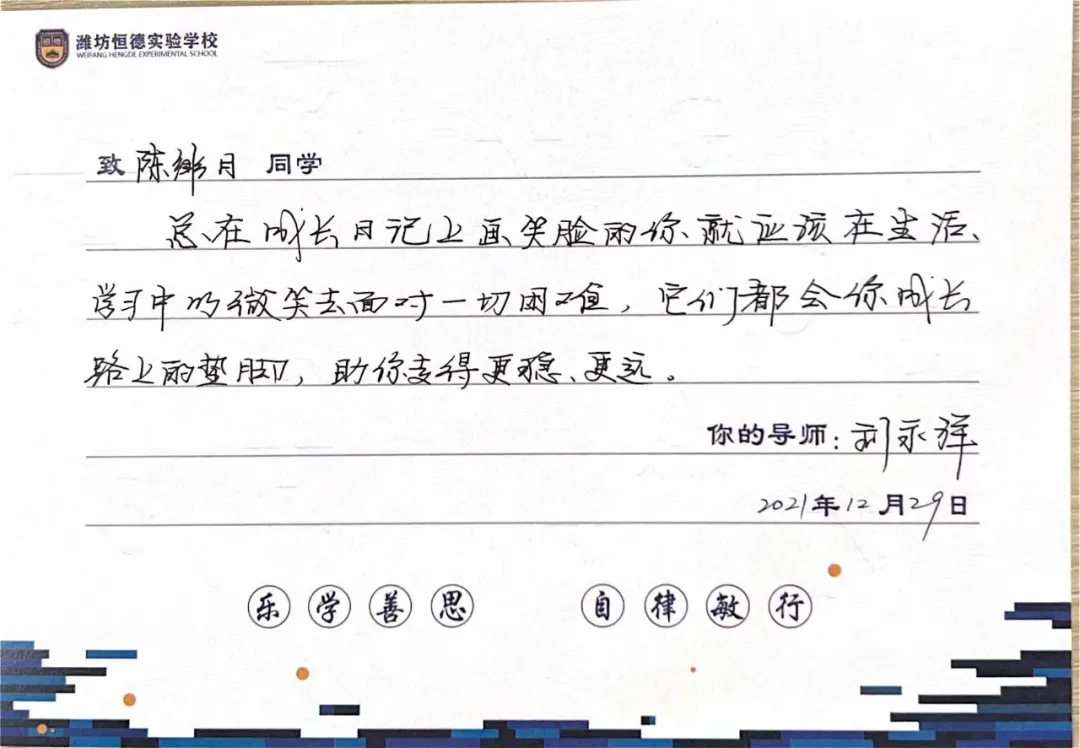 潍坊恒德实验学校
WEIFANG HENGDE EXPERIMENTAL SCHOOL
致 陈 月 同学
总在成长日记上画笑脸的你,就应该在生活、
学习中的微笑去面对一切困难,它们都会你成长
路上的垫脚,助你变得更稳、更远。
你的导师:刘永祥
2021年12月29日
乐学善思 自律敏行